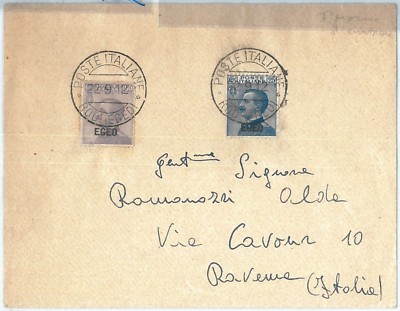 POSTE ITALIANE
22.9.12
RODI (EGEO)
EGEO
POSTE ITALIANE
EGEO
Gent.ma Signora
Romanozzi Alda
Via Cavour 10
Ravenna (Italia)